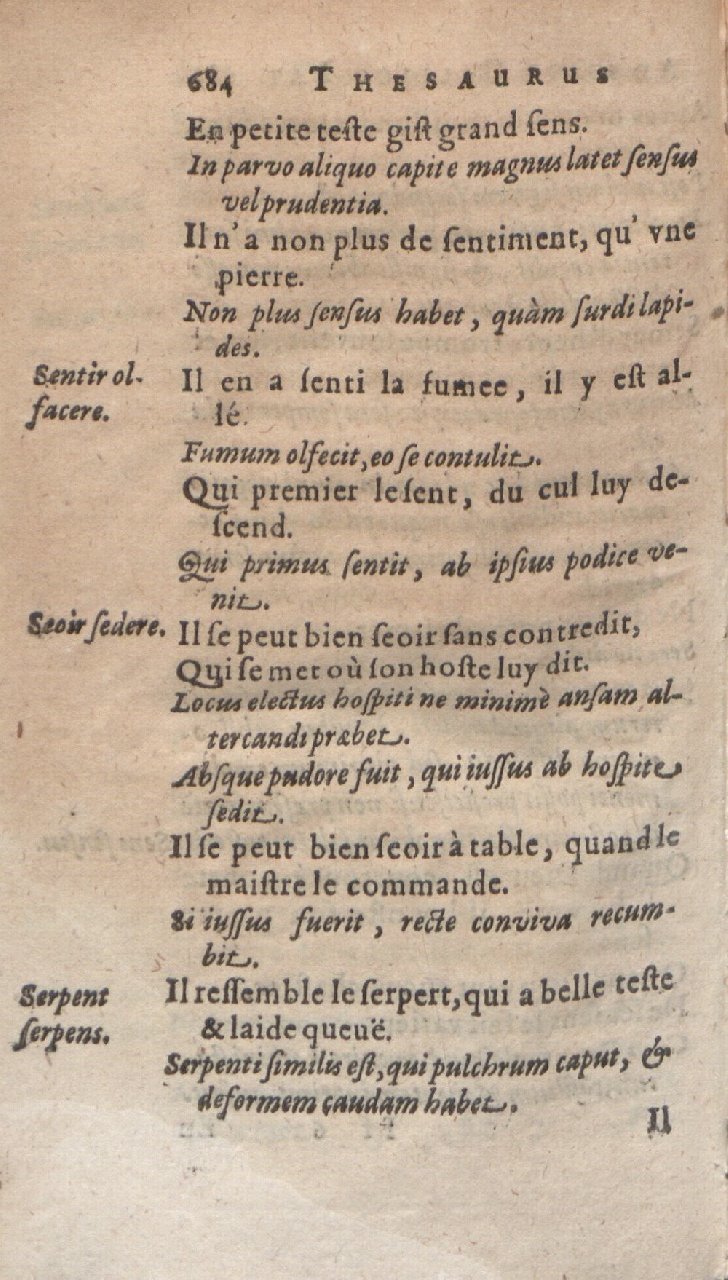 684 THESAURUS
En petite teste gist grand sens.
In parvo aliquo capite magnus latet sensus
vel prudentia.
Il n'a non plus de sentiment, qu' vne
pierre.
Non plus sensus habet, quàm surdi lapi-
des.
Sentir ol-
facere.
Il en a senti la fumee, il y est al-
lé.
Fumum olfecit, eo se contulit.
Qui premier le sent, du cul luy de-
scend.
Qui primus sentit, ab ipsius podice ve-
nit.
Seoir sedere.
Il se peut bien seoir sans contredit,
Qui se met où son hoste luy dit.
Locus electus hospiti ne minimè ansam al-
tercandi præbet.
Absque pudore fuit, qui iussus ab hospite
sedit.
Il se peut bien seoir à table, quand le
maistre le commande.
Si iussus fuerit, recte conviva recum-
bit.
Serpent
serpens.
Il ressemble le serpert, qui a belle teste
& laide queuë.
Serpenti similis est, qui pulchrum caput, &
deformem caudam habet.
Il